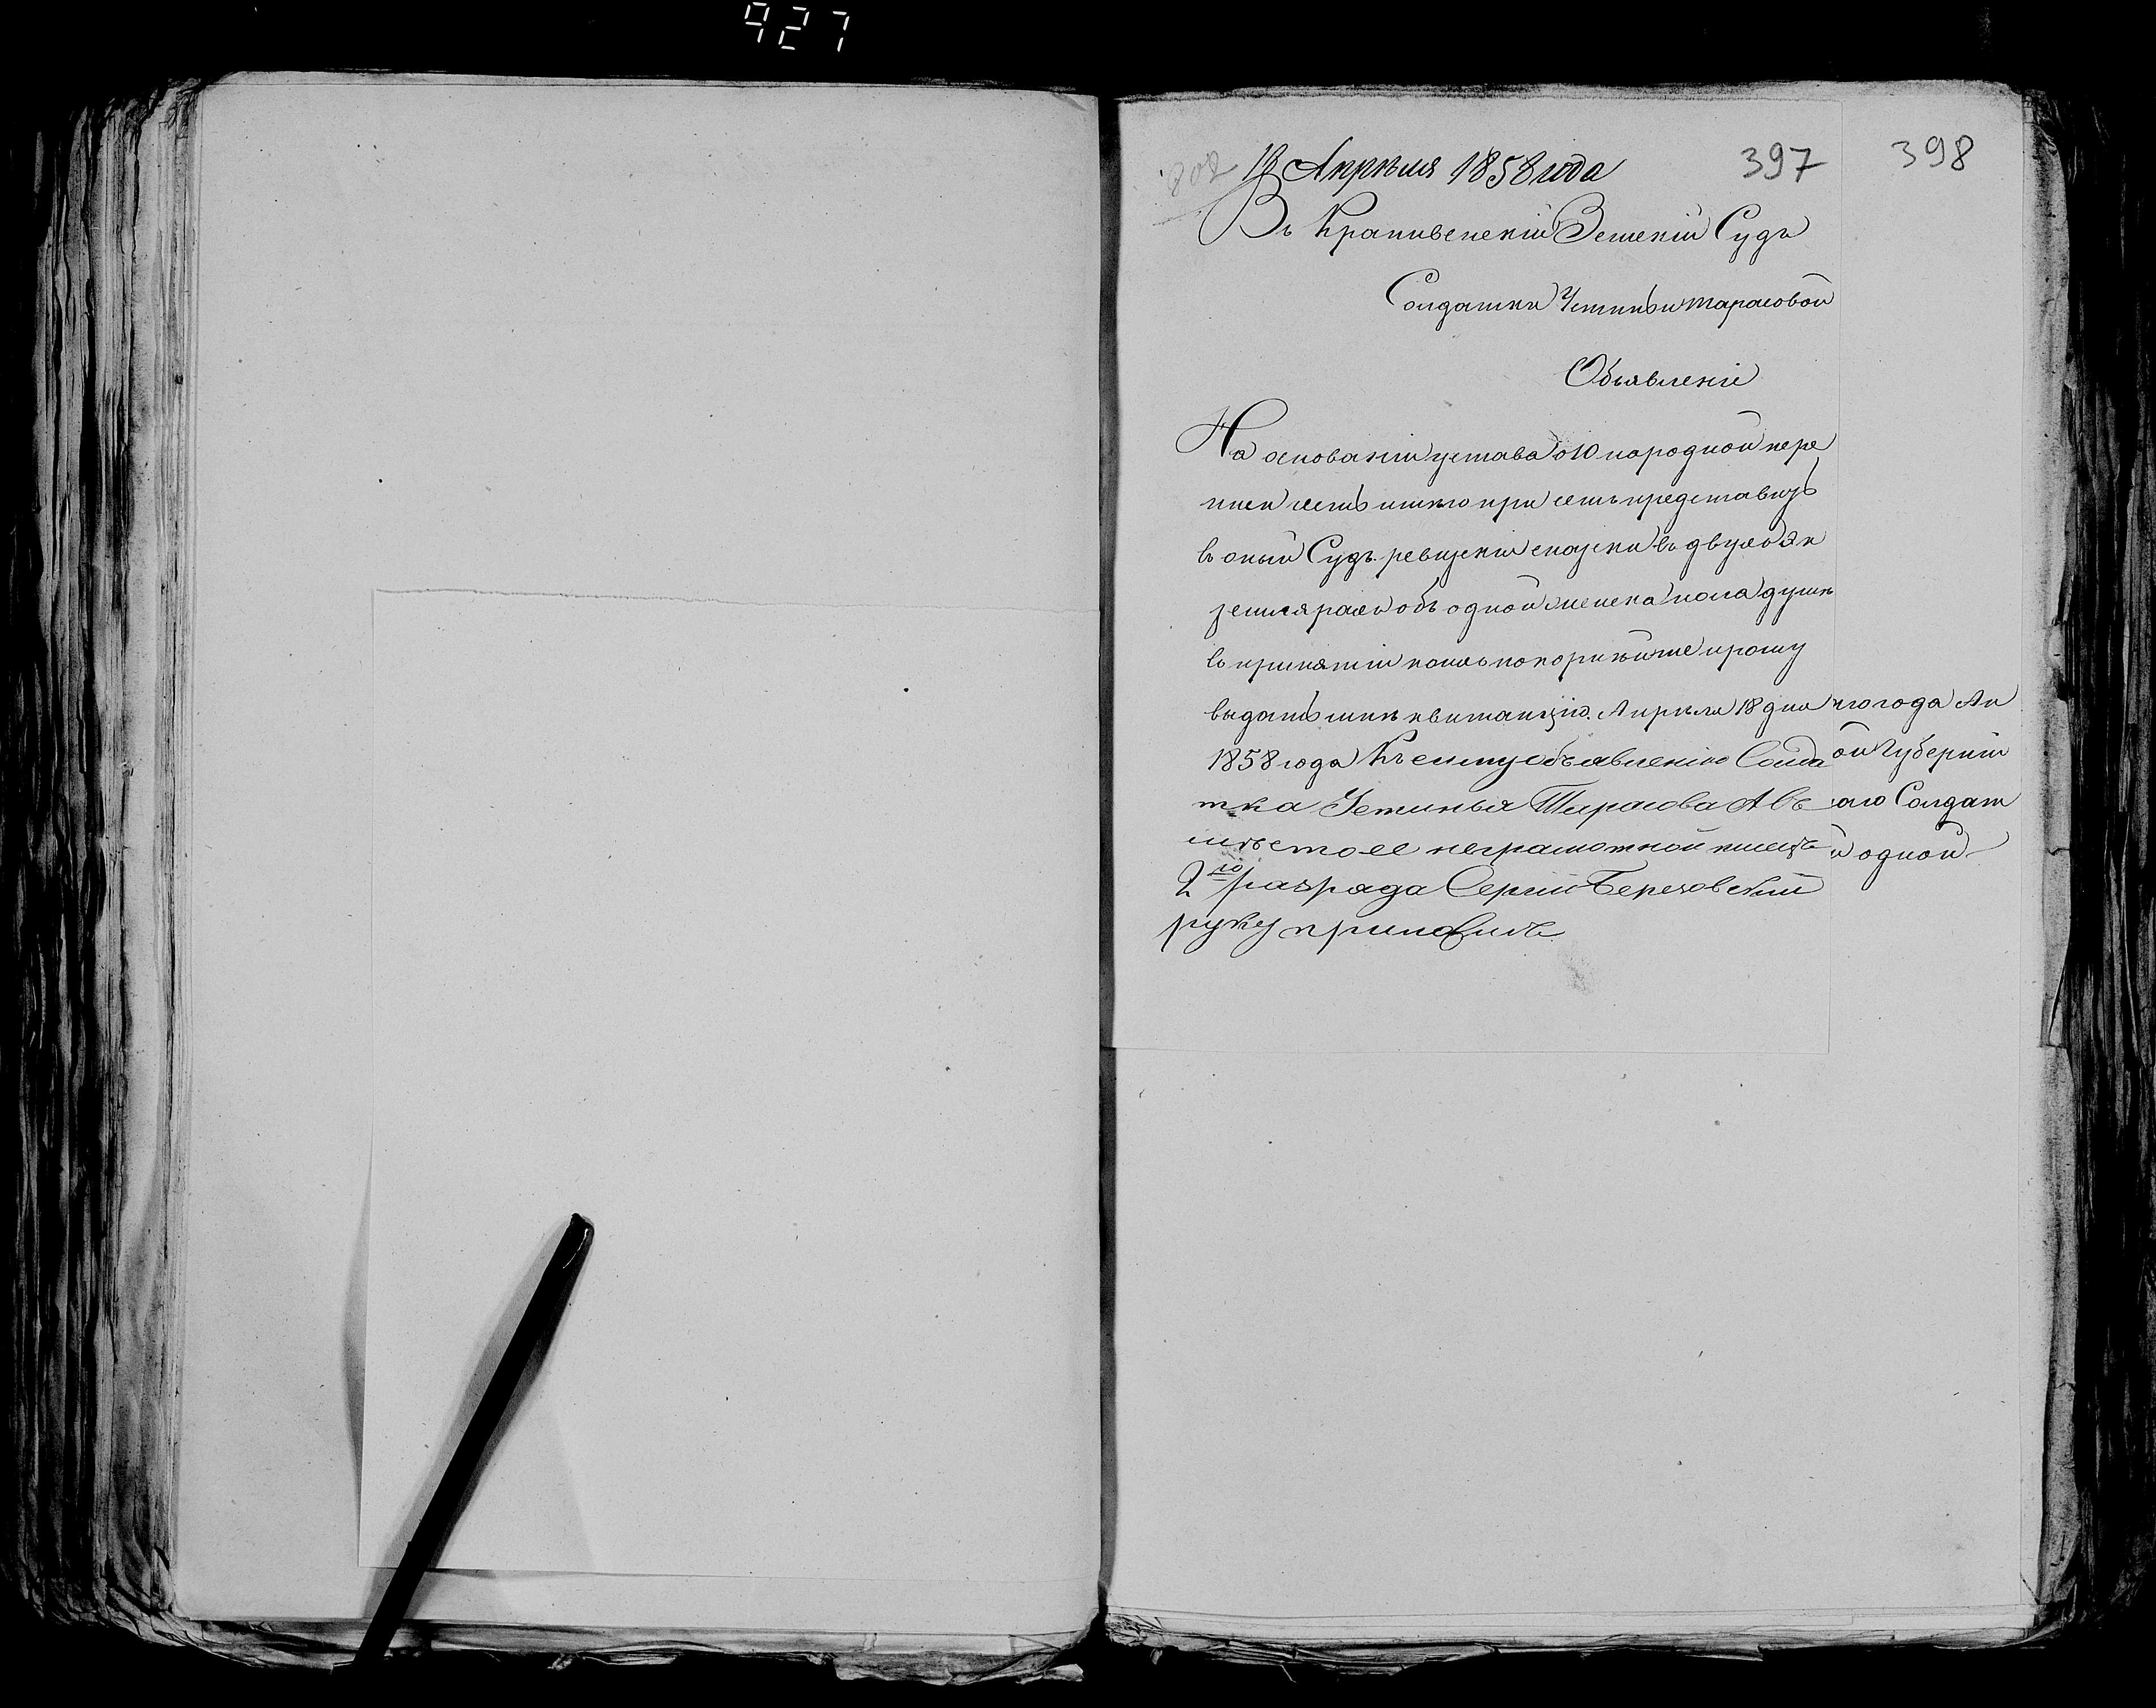 427
802 18 Апрѣля 1858 года 397 398
Въ Крапивенскій Земскій Судъ
Солдатки Устиньи Тарасовой
Объявленіе
На основаніи устава о 10 народной пере
писи честь имѣю при семъ представить
въ оный Судъ ревизскіи сказски въ двухъ эк
земплярахъ объ одной женска пола душѣ
въ принятіи коихъ покорнѣйше прошу
выдать мнѣ квитанцію. Апрѣля 18 дня
1858 года Къ сему объявленію Солда
тка Устинья Тарасова А въ
мѣсто ее неграмотной писецъ
2го разряда Сергій Березовскій
руку приложилъ
го года Ап
ой Губерніи
аго Солдат
и одной